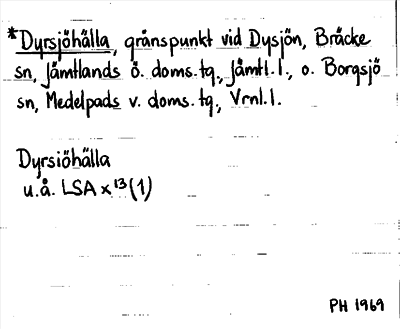 *Dyrsjöhälla, gränspunkt vid Dysjön, Bräcke
sn, Jämtlands ö. doms. tg., Jämtl. l., o. Borgsjö
sn, Medelpads v. doms. tg., Vrnl. l.
Dyrsiöhälla
u.å. LSA x¹³(1)
PH 1969